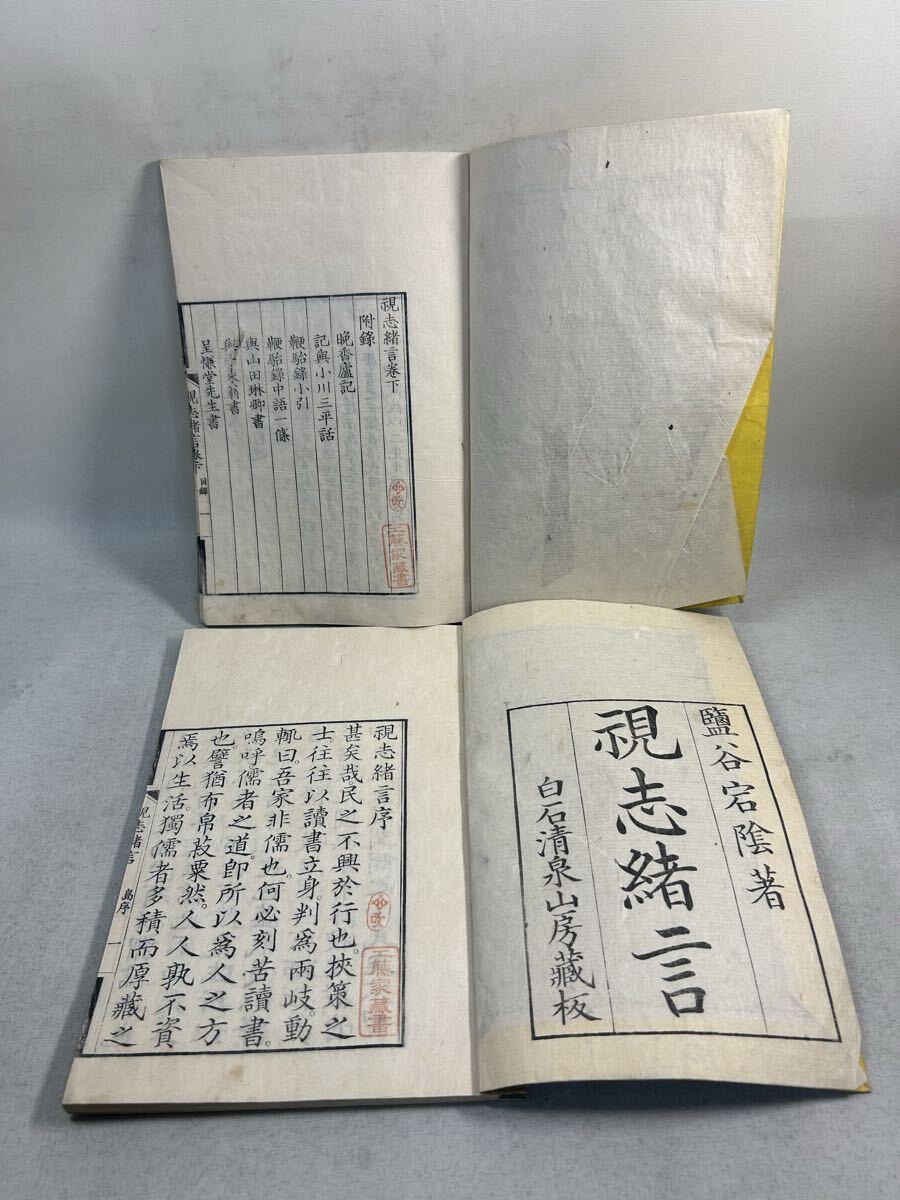 視志緒言卷下
附錄
晩香廬記
記與小川三平話
鞭駘錄小引
鞭駘錄中語一條
與山田琳卿書
翁書
呈慊堂先生書
視志緒言卷下
目錄
一
工藤家藏書
鹽谷宕陰著
視志緒言
白石清泉山房藏板
視志緒言序
甚矣哉民之不興於行也。挾策之
士。往往以讀書立身。判爲兩岐。動
輒曰。吾家非儒也。何必刻苦讀書。
嗚呼。儒者之道。卽所以爲人之方
也。譬猶布帛菽粟然。人人孰不資
焉以生活。獨儒者多積而厚藏之
視志緒言
序
一
工藤家藏書